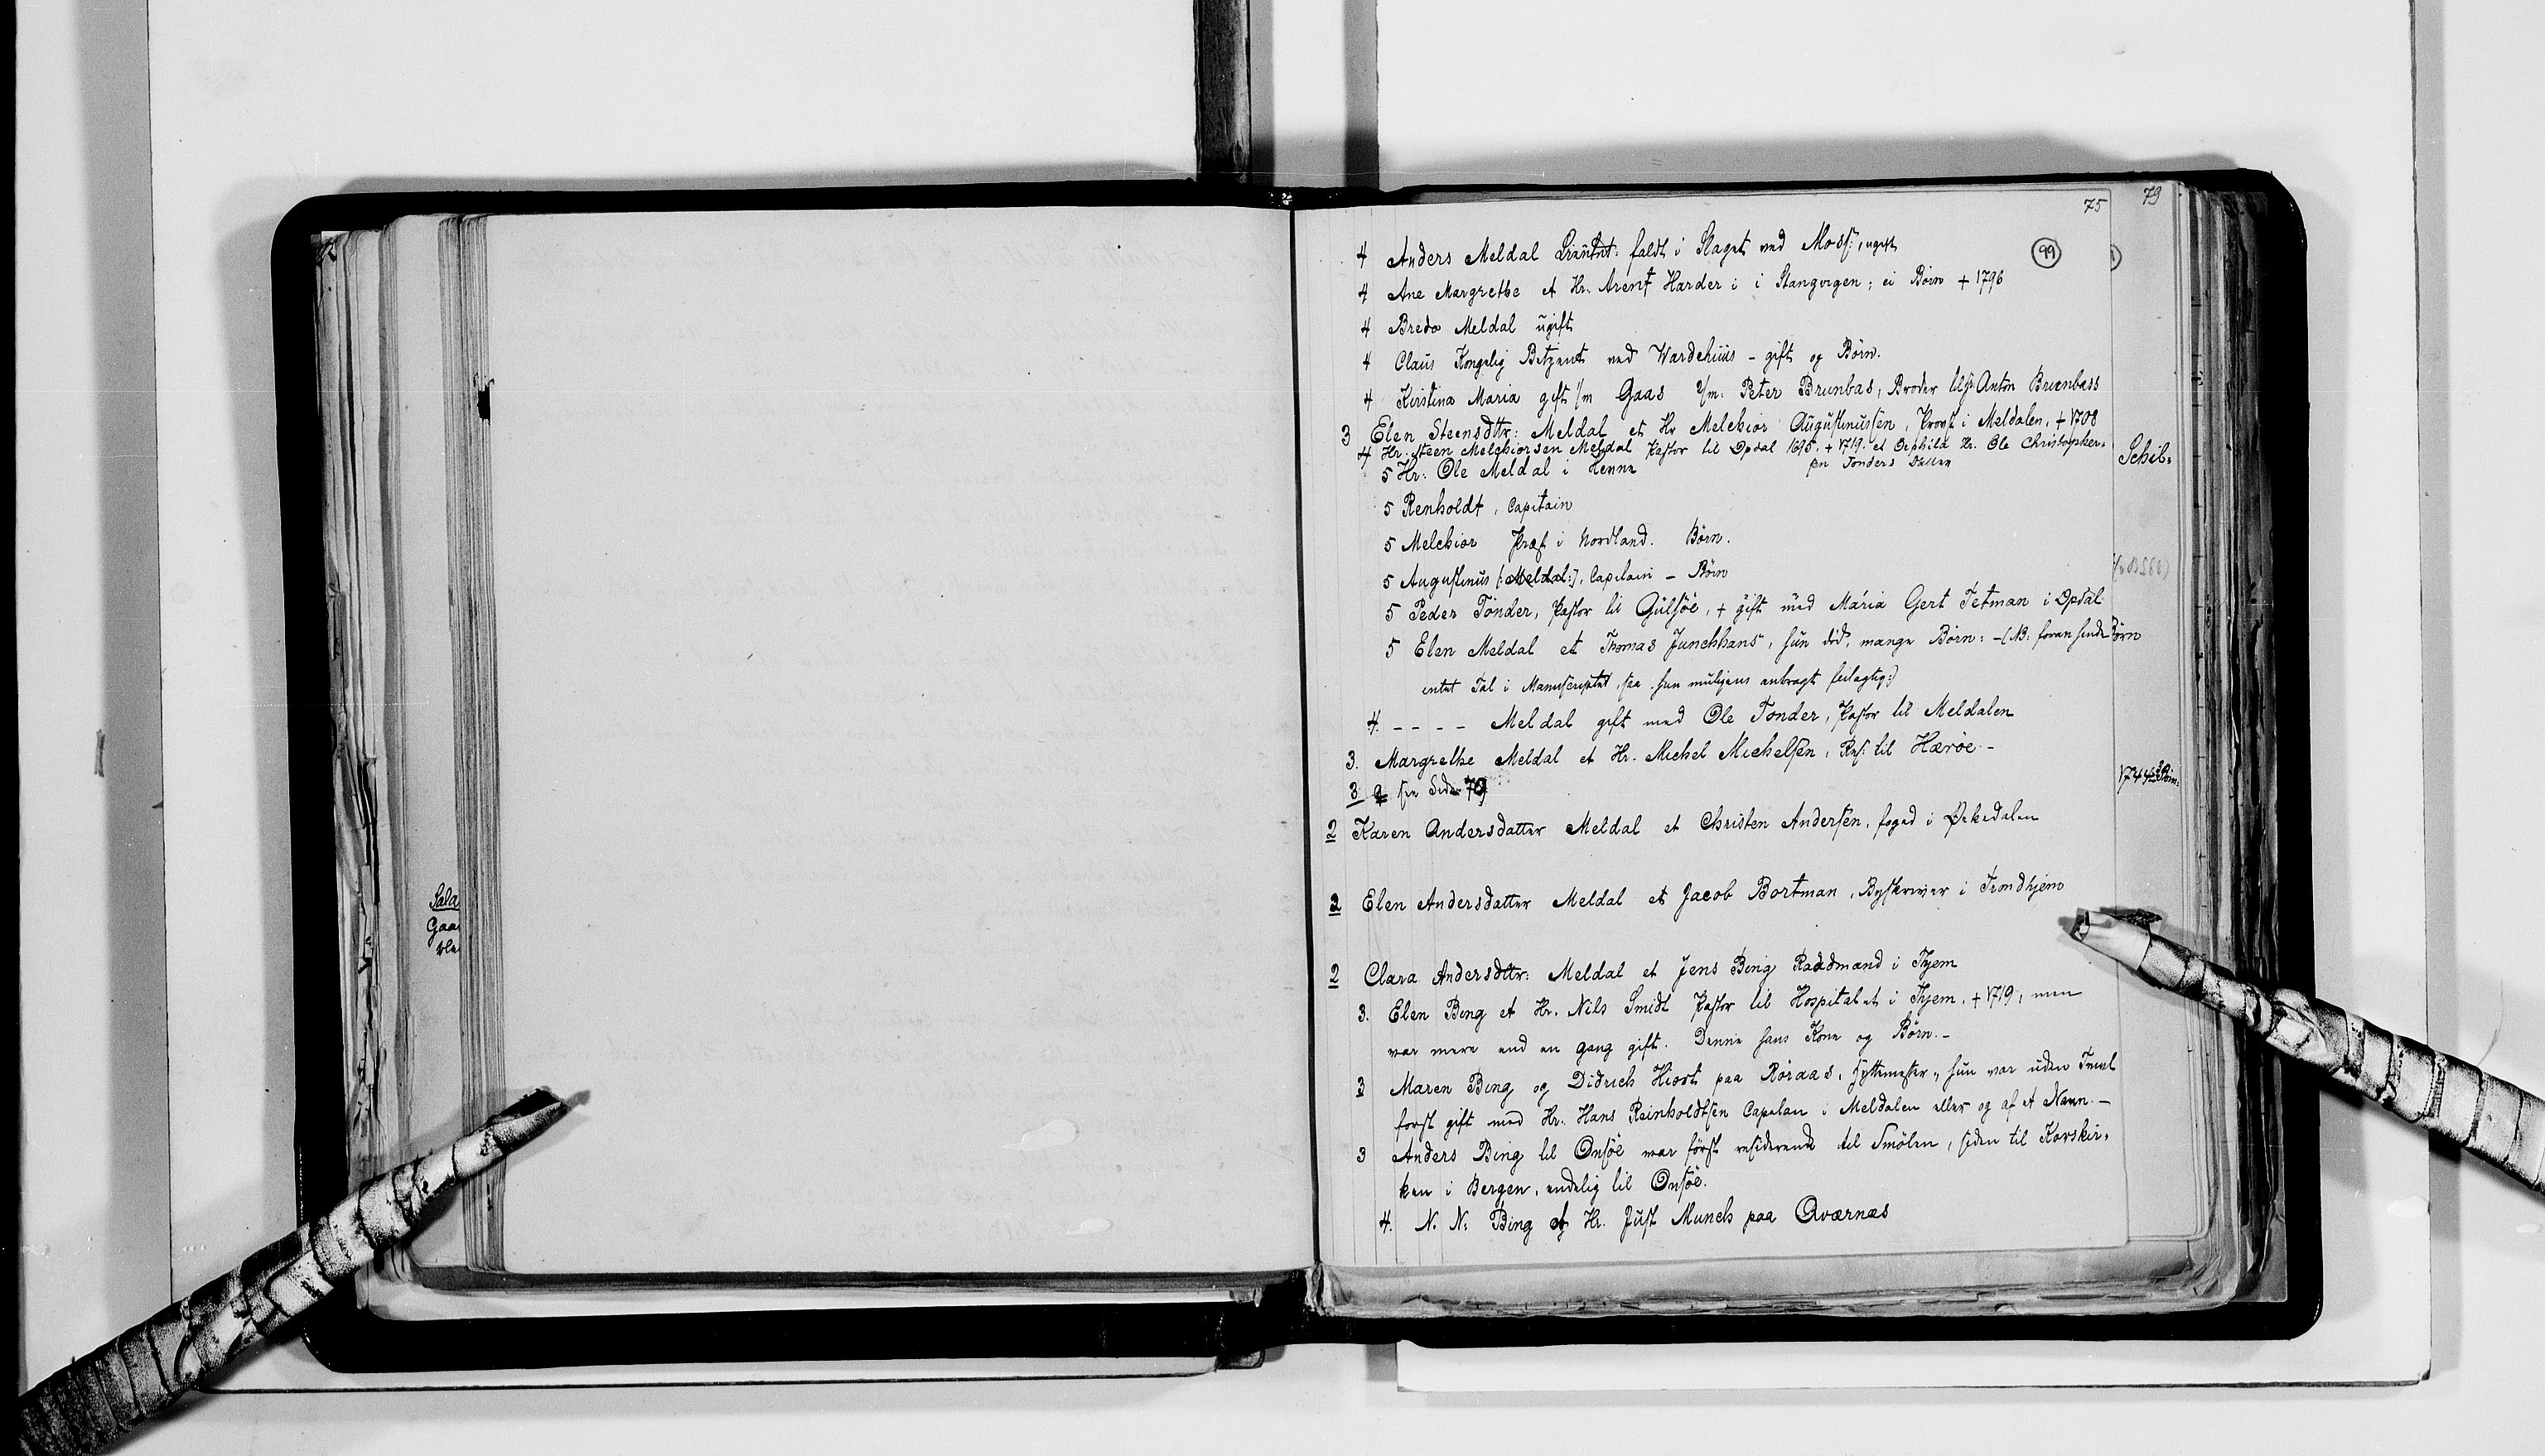 75
79
99
4 Anders Meldal Lieutnt: faldt i Slaget ved Moss:, ugift
4 Ane Margrethe et Hr. Arent Harder i i Stangvigen; ei Børn + 1796
4 Bredo Meldal ugift
4 Claus Kongelig Betjent ved Wardehuus - gift og Børn.
4 Kirstina Maria gift 1/m Gaas 2/m: Peter Brunbas, Broder til Hr Anton Bruenbass
3 Elen Steensdttr: Meldal et Hr Melchior Augustinussen, Provst i Meldalen, + 1708
4 Hr. Steen Melchiorsen Meldal Pastor til Opdal 1695. + 1719. et Hr. Ole Christopher=
sen Tønders Datter
5 Hr: Ole Meldal i Henne
Schil=
5 Renholdt, Capitain
5 Melchior Præst i Nordland. Børn.
5 Augustinus [:Meldal:], Capitain - Børn
5 Peder Tønder, Pastor til Gulsöe, + gift med Maria Gert Tetman i Opdal
5 Elen Meldal et Thomas Junchhans, hun död, mange Børn: - (NB: foran hende Børn
intet Tal i Manuscriptet, saa hun muligens anbragt feilagtig:)
4. - - - - Meldal gift med Ole Tønder, Pastor til Meldalen
3. Margrethe Meldal et Hr. Michel Michelsen, Res: til Herøe -
3 9 see Side 79
2 Karen Andersdatter Meldal et Christen Andersen, foged i Ørkedalen
2 Elen Andersdatter Meldal et Jacob Bortman, Byskriver i Trondhjem
2 Clara Andersdttr: Meldal et Jens Bing Raadmand i Thjem
3. Elen Bing et Hr. Nils Smidt Pastor til Hospitalet i Thjem, + 1719, men
var mere end en gang gift. Denne hans Kone og Børn. -
3 Maren Bing og Didrich Hiort paa Røraas, Hyttemester, hun var uden Tvivl
først gift med Hr. Hans Reinholdtsen Capelan i Meldalen eller og af et Navn. -
3 Anders Bing til Onsöe var först residerende til Smölen, siden til Korskir=
ken i Bergen, endelig til Onsöe.
4. N. N. Bing et Hr. Just Munch paa Qværnæs
Gaa